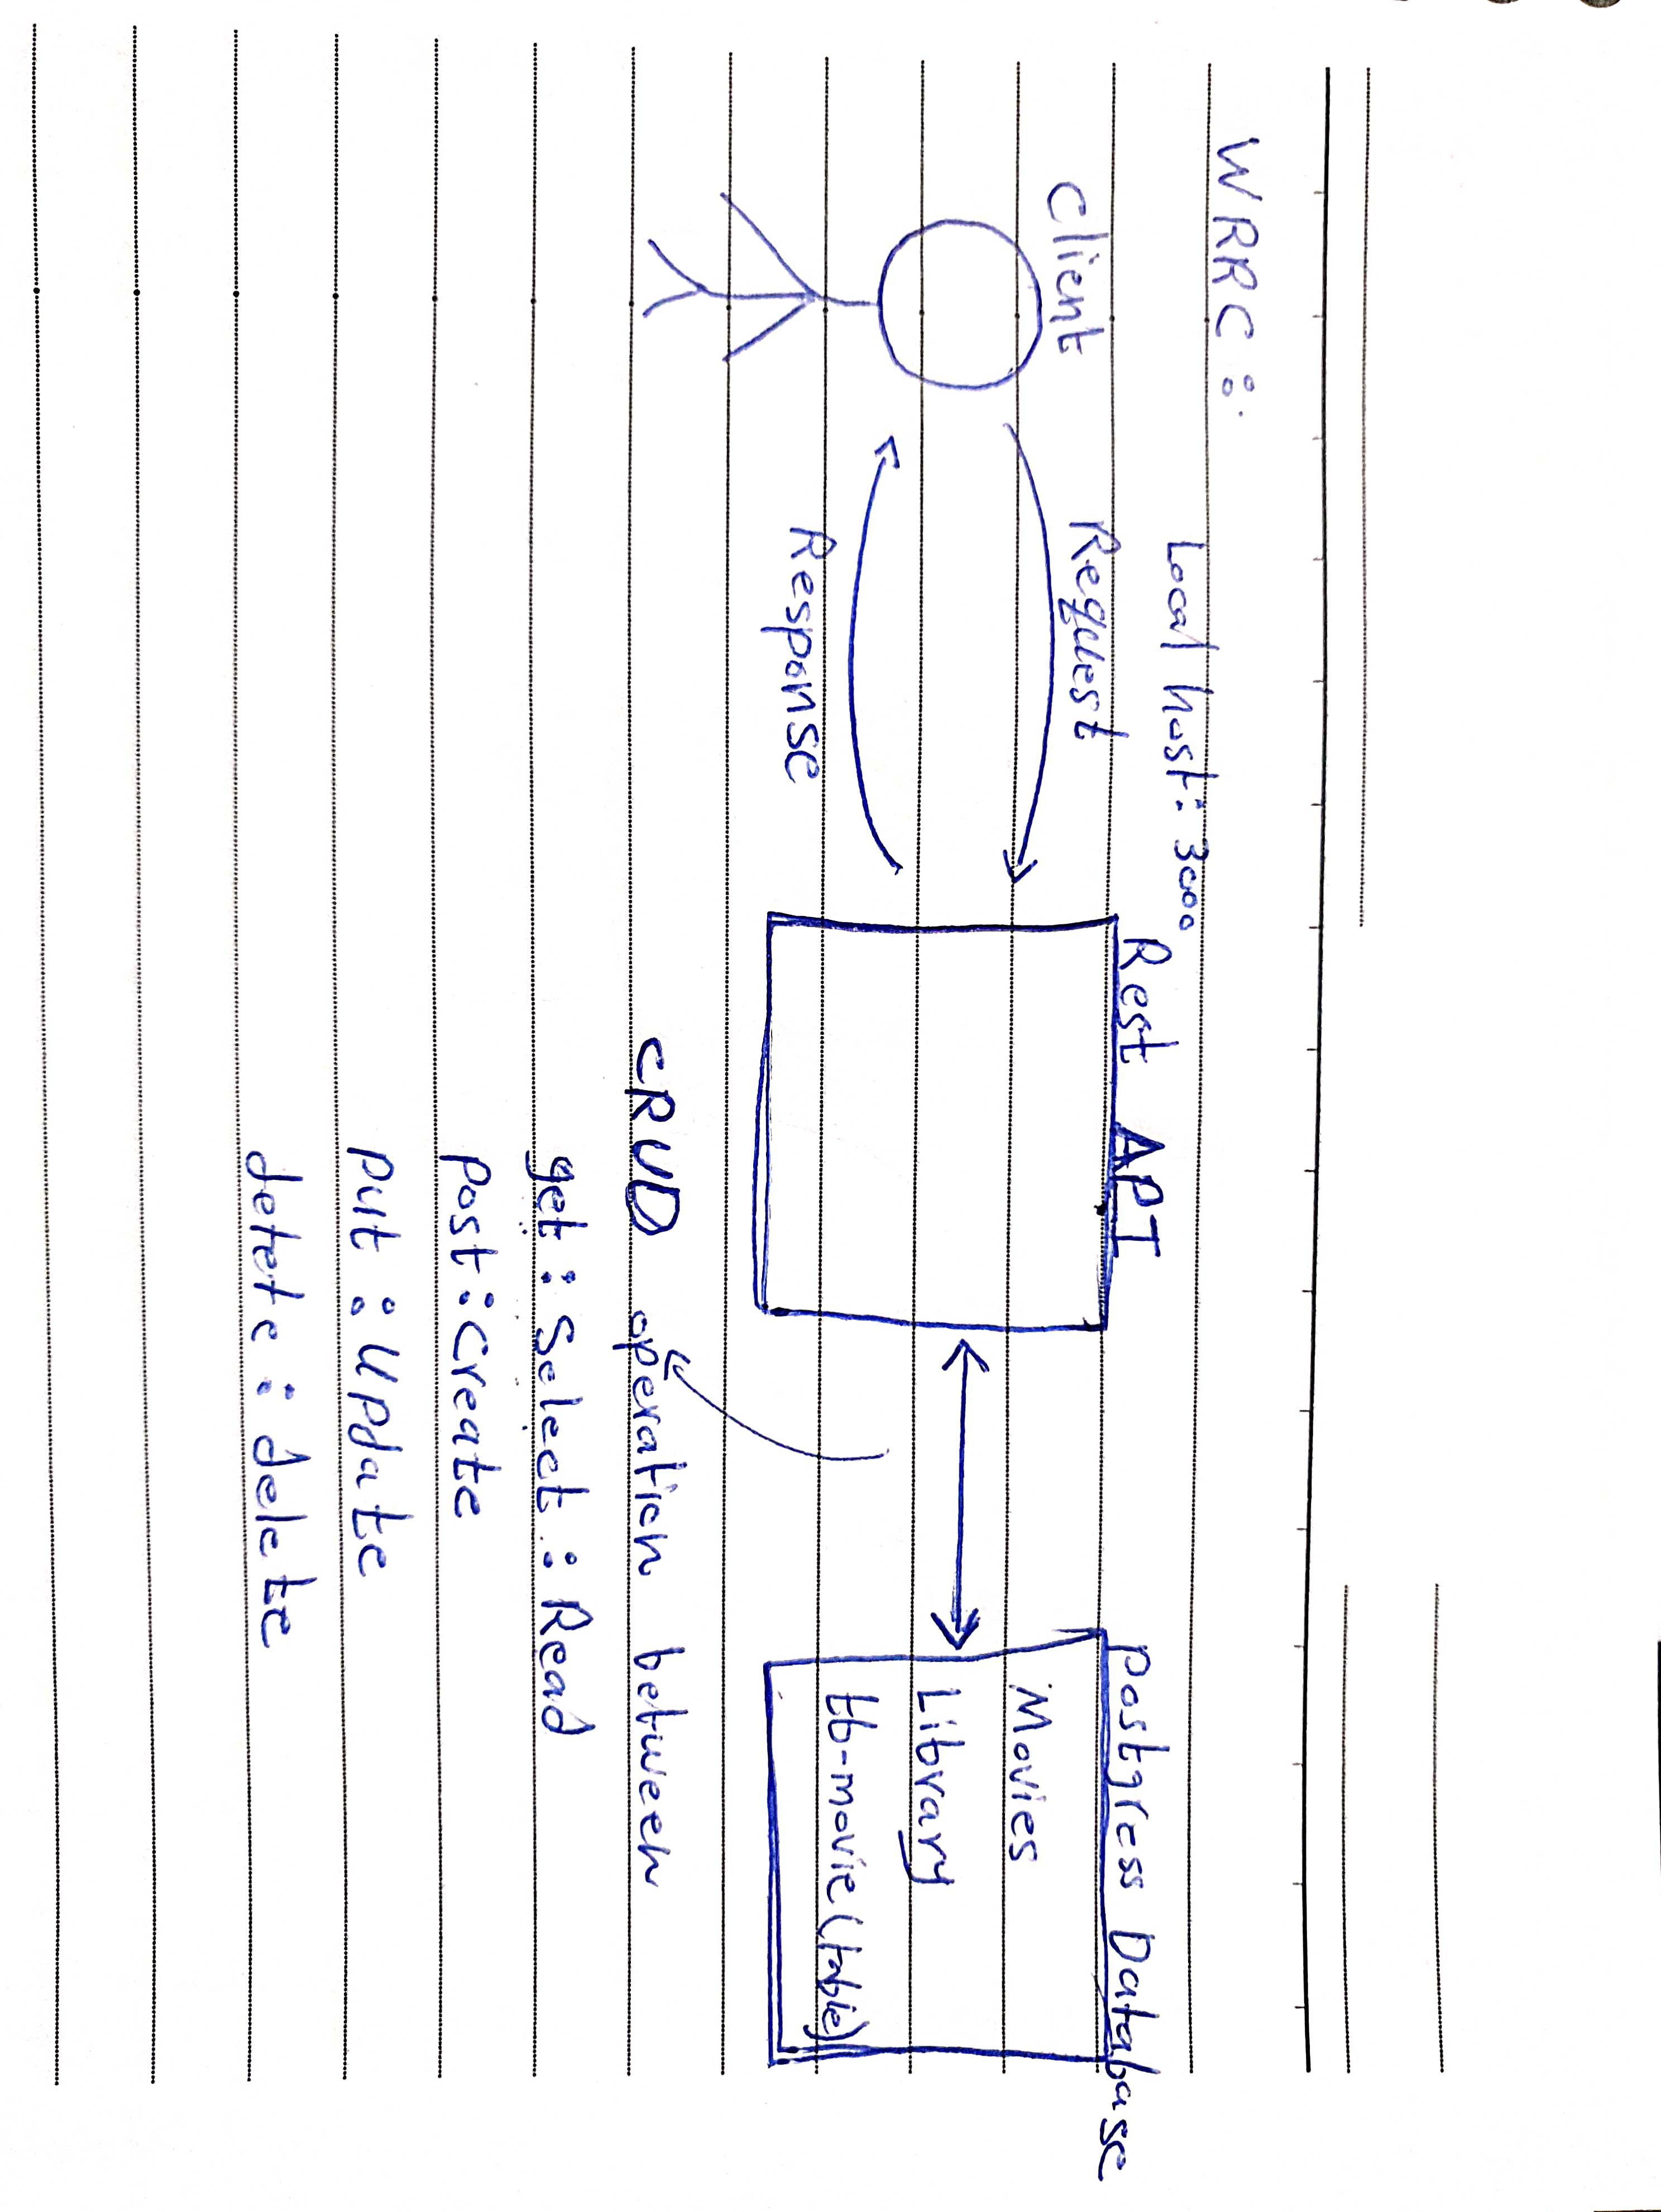 WRRC :
Local host: 3000
Client
Request
Rest API
Postgress Database
Response
Movies
Library
tb-movie (table)
CRUD operation between
get : Select : Read
post : create
put : update
delete : delete